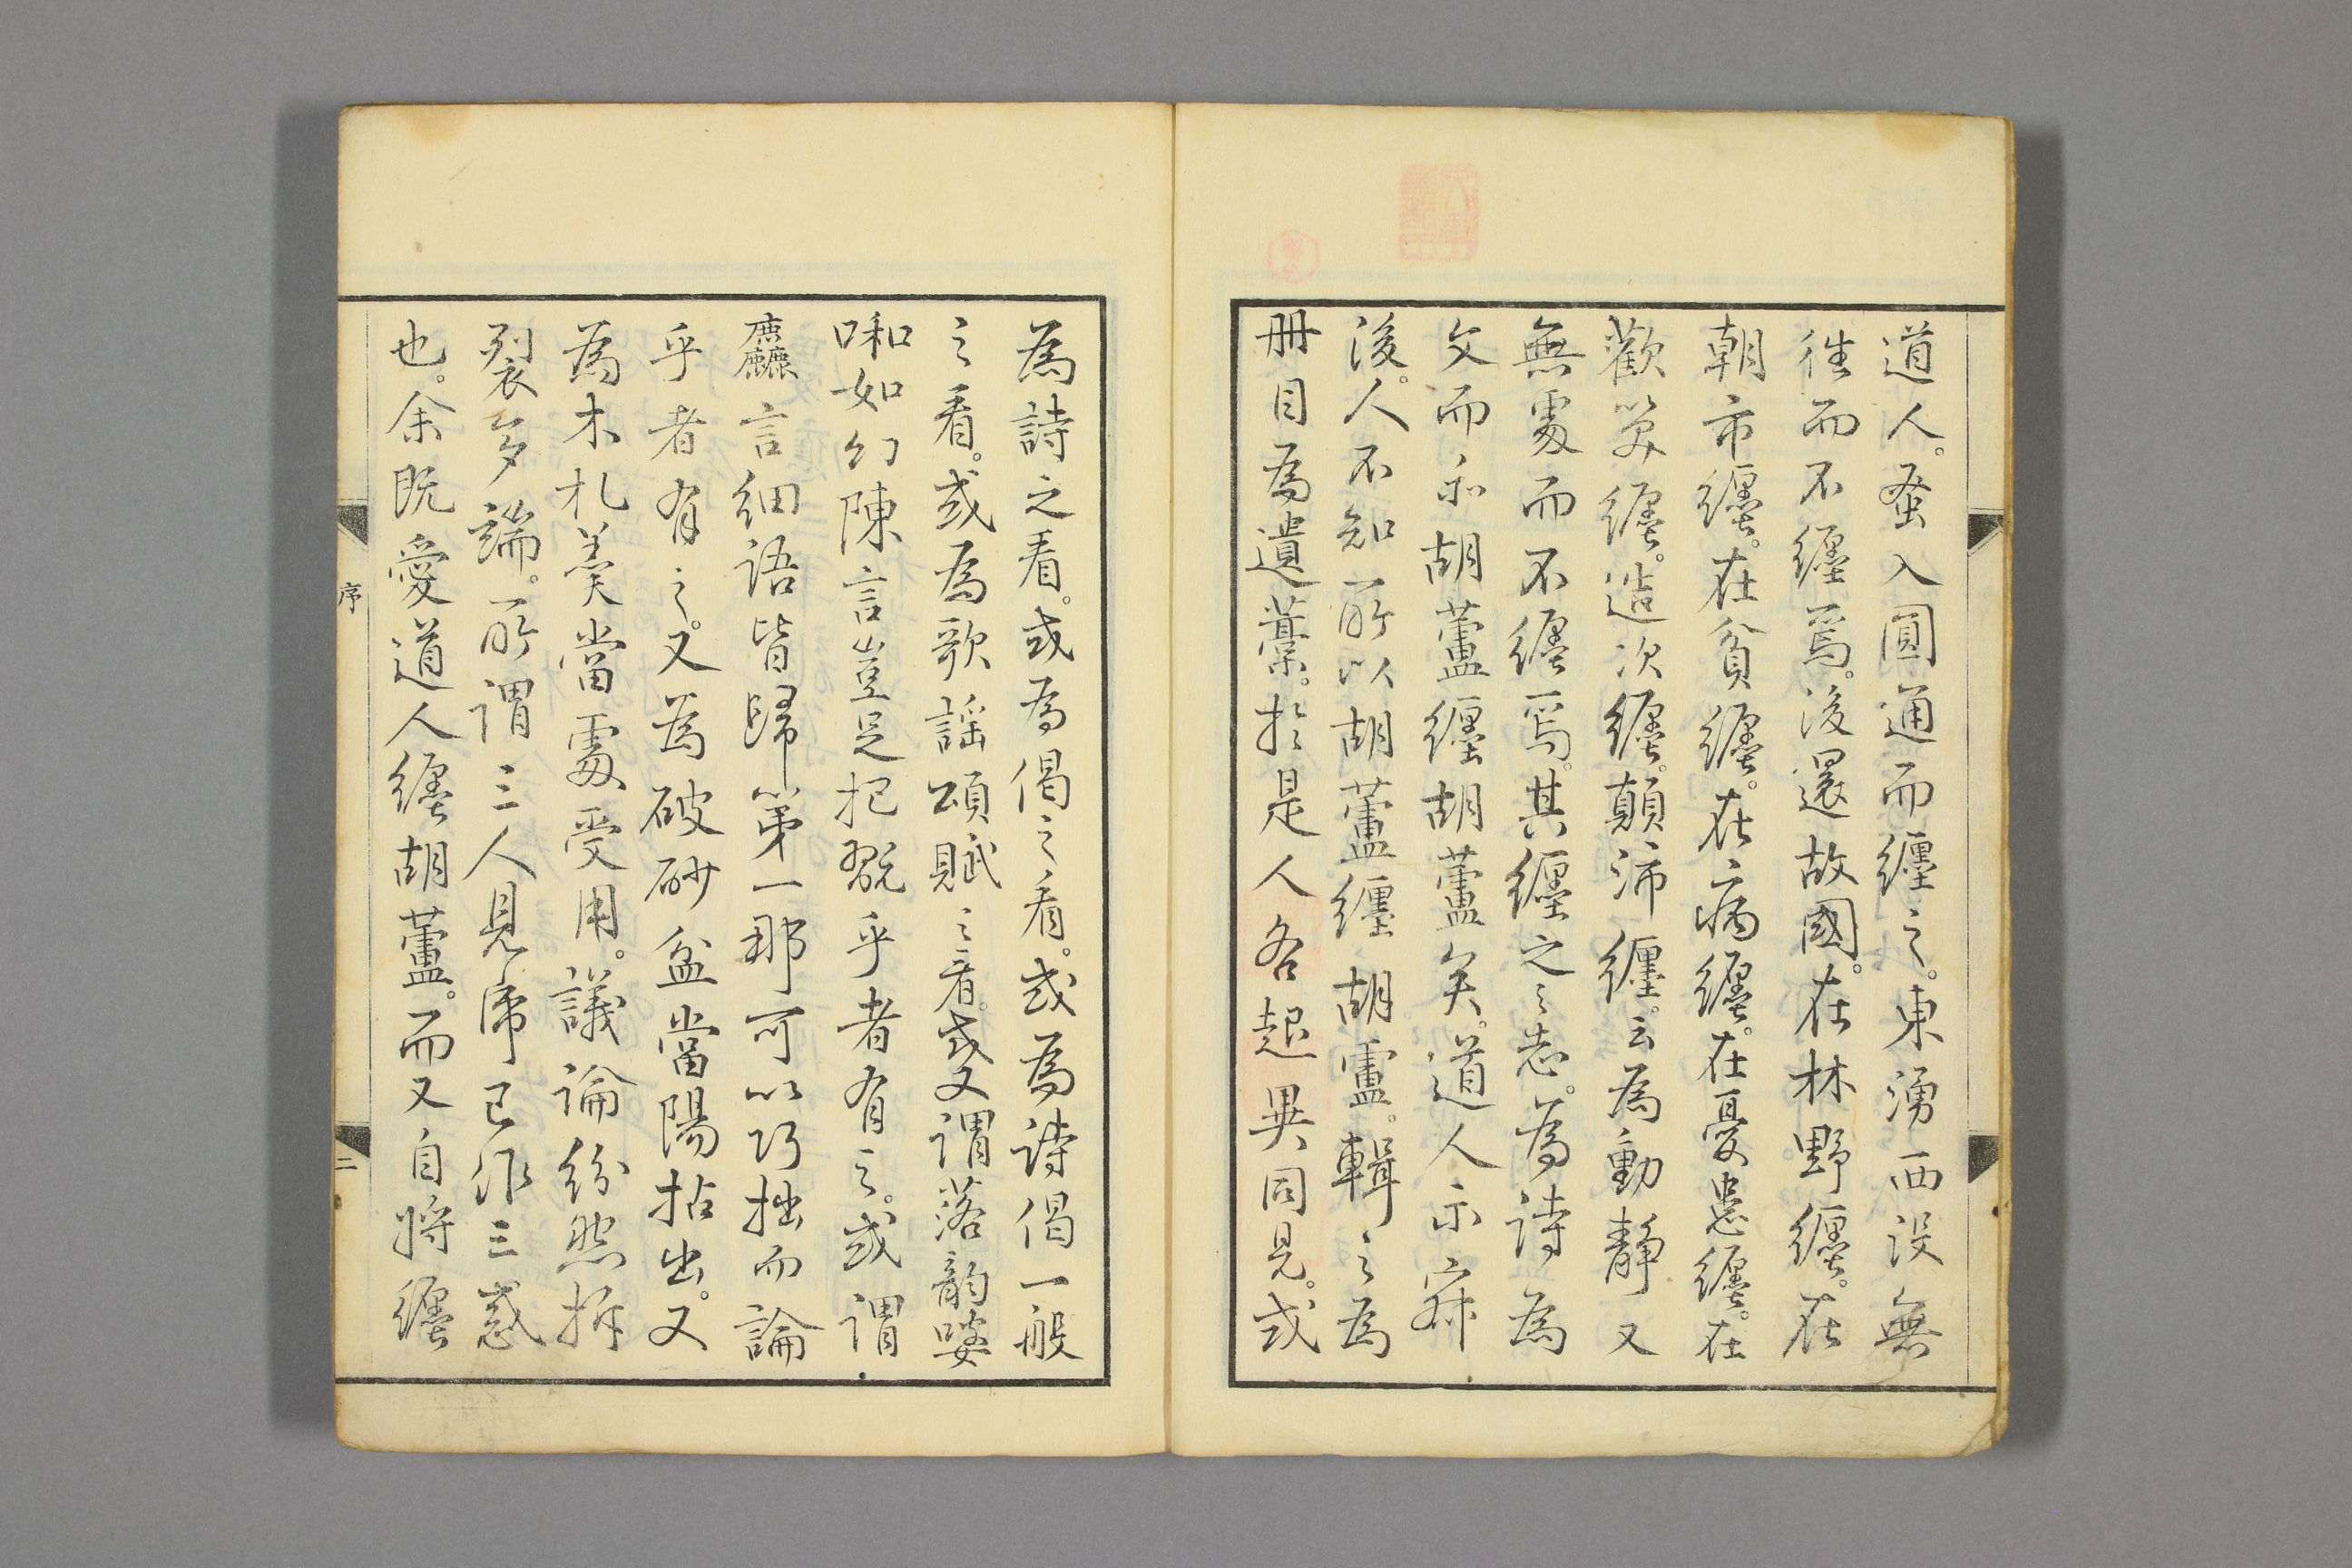 道人。蚤入圓通而纏之。東湧西没無
徃而不纏焉。後還故國。在林野纏。在
朝市纏。在貧纏。在病纏。在憂患纏。在
歡笑纏。造次纏。顛沛纏。云為動靜又
無處而不纏焉。其纏之之志。為詩為
文而示胡蘆纏胡蘆矣。道人示寂
後。人不知所以胡蘆纏胡盧。輯之為
册目為遺藁。於是人各起異同見。或
為詩之看。或為偈之看。或為詩偈一般
之看。或為歌謡頌賦之看。或又謂落韵
啝如幻陳言豈足把翫乎者有之。或謂
麤言細語皆歸第一那可以巧拙而論
乎者有之。又為破砂盆當陽拈出。又
為木札羹當處受用。議論紛然拆
裂多端。所謂三人見席已作三惑
也。余既愛道人纏胡蘆。而又自將纏
序
二